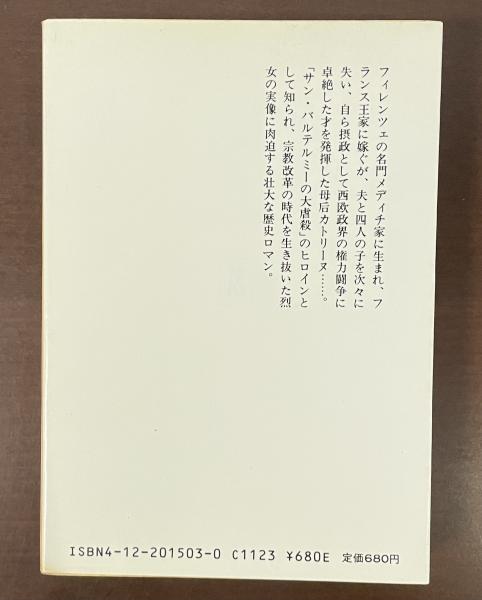 フィレンツェの名門メディチ家に生まれ、フ
ランス王家に嫁ぐが、夫と四人の子を次々に
失い、自ら摂政として西欧政界の権力闘争に
卓絶した才を発揮した母后カトリーヌ……。
「サン・バルテルミーの大虐殺」のヒロインと
して知られ、宗教改革の時代を生き抜いた烈
女の実像に肉迫する壮大な歴史ロマン。
ISBN4-12-201503-0 C1123 ¥680E 定価680円